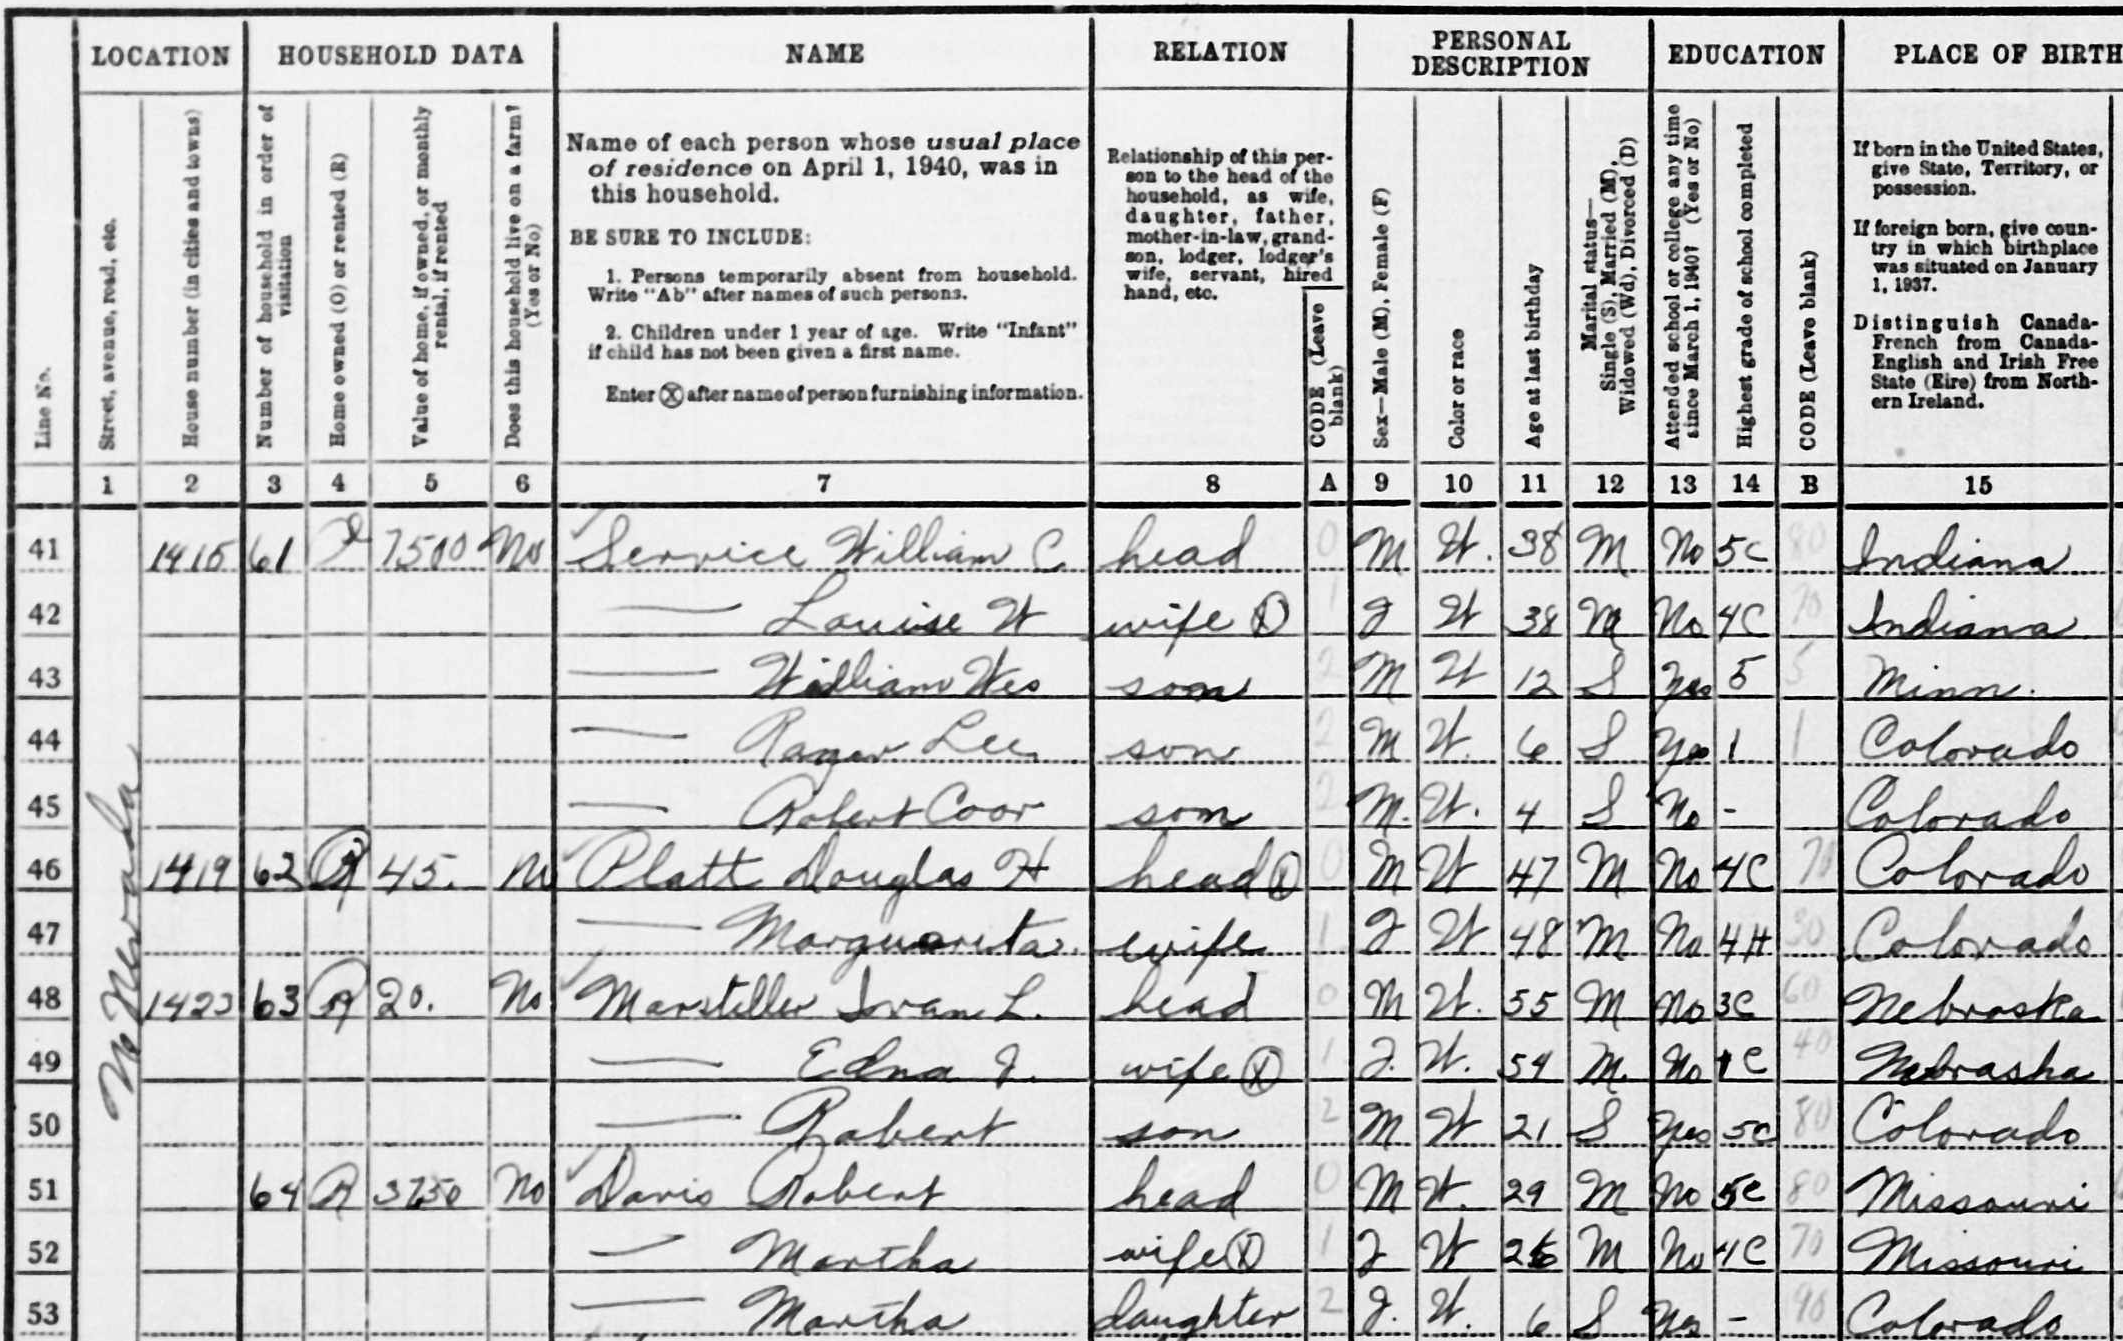 LOCATION HOUSEHOLD DATA NAME RELATION PERSONAL DESCRIPTION EDUCATION PLACE OF BIRTH
Line No.
Street, avenue, road, etc.
House number (in cities and towns)
Number of household in order of visitation
Home owned (O) or rented (R)
Value of home, if owned, or monthly rental, if rented
Does this household live on a farm? (Yes or No)
Name of each person whose usual place
of residence on April 1, 1940, was in
this household.
BE SURE TO INCLUDE:
1. Persons temporarily absent from household.
Write "Ab" after names of such persons.
2. Children under 1 year of age. Write "Infant"
if child has not been given a first name.
Enter Ⓧ after name of person furnishing information.
Relationship of this per-
son to the head of the
household, as wife,
daughter, father,
mother-in-law, grand-
son, lodger, lodger's
wife, servant, hired
hand, etc.
CODE (Leave blank)
Sex—Male (M), Female (F)
Color or race
Age at last birthday
Marital status—
Single (S), Married (M),
Widowed (Wd), Divorced (D)
Attended school or college any time
since March 1, 1940? (Yes or No)
Highest grade of school completed
CODE (Leave blank)
If born in the United States,
give State, Territory, or
possession.
If foreign born, give coun-
try in which birthplace
was situated on January
1, 1937.
Distinguish Canada-
French from Canada-
English and Irish Free
State (Eire) from North-
ern Ireland.
1 2 3 4 5 6 7 8 A 9 10 11 12 13 14 B 15
No Nevada
41 1415 61 7500 No Service William C head 0 M W. 38 M No 5C 80 Indiana
42 Louise W wife Ⓧ 1 F W 38 M No 4C 70 Indiana
43 William Wes son 2 M W 12 S Yes 5 5 Minn.
44 Roger Lee son 2 M W. 6 S Yes 1 1 Colorado
45 Robert Coor son 2 M. W. 4 S No - Colorado
46 1419 62 R 45. No Platt Douglas H head Ⓧ 0 M W 47 M No 4C 70 Colorado
47 Marguareta wife 1 F W 48 M No 4H 30 Colorado
48 1423 63 R 20. No Marsteller Ivan L. head 0 M W. 55 M No 3C 60 Nebraska
49 Edna J. wife Ⓧ 1 F. W. 54 M. No 1C 40 Nebraska
50 Robert son 2 M W 21 S Yes 5C 80 Colorado
51 64 R 3750 No Davis Robert head 0 M W. 29 M No 5C 80 Missouri
52 Martha wife Ⓧ 1 F W 26 M No 4C 70 Missouri
53 Martha daughter 2 F. W. 6 S Yes - 90 Colorado